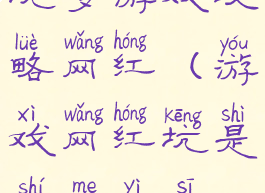 lüè wǎng hóng yóu
略网红（游
xì wǎng hóng kēng shì
戏网红坑是
shí me yì sī